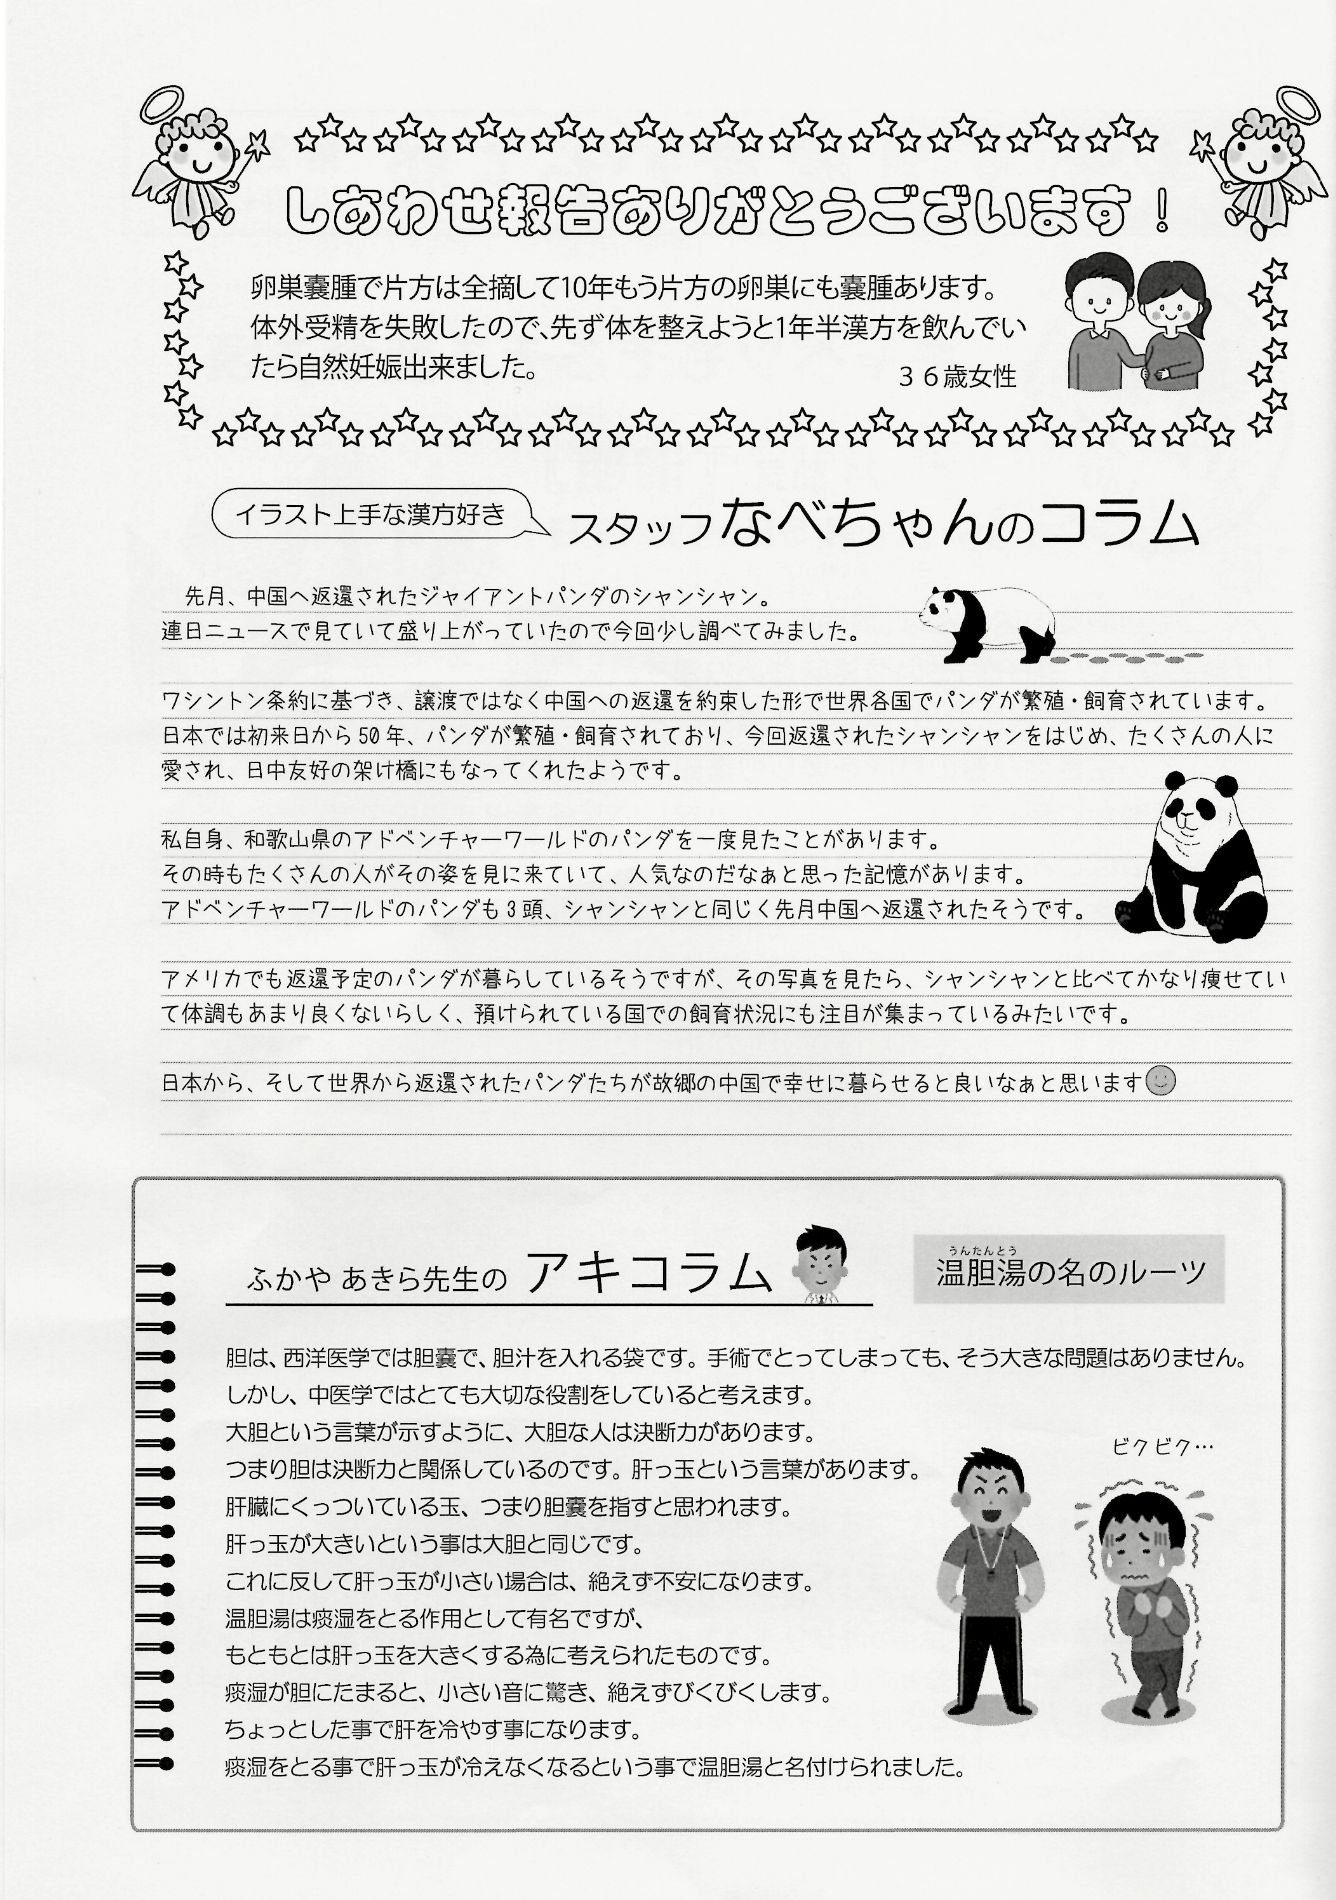 しあわせ報告ありがとうございます！
卵巣嚢腫で片方は全摘して10年もう片方の卵巣にも嚢腫あります。
体外受精を失敗したので、先ず体を整えようと1年半漢方を飲んでい
たら自然妊娠出来ました。
３６歳女性
イラスト上手な漢方好き
スタッフなべちゃんのコラム
先月、中国へ返還されたジャイアントパンダのシャンシャン。
連日ニュースで見ていて盛り上がっていたので今回少し調べてみました。
ワシントン条約に基づき、譲渡ではなく中国への返還を約束した形で世界各国でパンダが繁殖・飼育されています。
日本では初来日から50年、パンダが繁殖・飼育されており、今回返還されたシャンシャンをはじめ、たくさんの人に
愛され、日中友好の架け橋にもなってくれたようです。
私自身、和歌山県のアドベンチャーワールドのパンダを一度見たことがあります。
その時もたくさんの人がその姿を見に来ていて、人気なのだなぁと思った記憶があります。
アドベンチャーワールドのパンダも3頭、シャンシャンと同じく先月中国へ返還されたそうです。
アメリカでも返還予定のパンダが暮らしているそうですが、その写真を見たら、シャンシャンと比べてかなり痩せてい
て体調もあまり良くないらしく、預けられている国での飼育状況にも注目が集まっているみたいです。
日本から、そして世界から返還されたパンダたちが故郷の中国で幸せに暮らせると良いなぁと思います
ふかや あきら先生の アキコラム
うんたんとう
温胆湯の名のルーツ
胆は、西洋医学では胆嚢で、胆汁を入れる袋です。手術でとってしまっても、そう大きな問題はありません。
しかし、中医学ではとても大切な役割をしていると考えます。
大胆という言葉が示すように、大胆な人は決断力があります。
つまり胆は決断力と関係しているのです。肝っ玉という言葉があります。
肝臓にくっついている玉、つまり胆嚢を指すと思われます。
肝っ玉が大きいという事は大胆と同じです。
これに反して肝っ玉が小さい場合は、絶えず不安になります。
温胆湯は痰湿をとる作用として有名ですが、
もともとは肝っ玉を大きくする為に考えられたものです。
痰湿が胆にたまると、小さい音に驚き、絶えずびくびくします。
ちょっとした事で肝を冷やす事になります。
痰湿をとる事で肝っ玉が冷えなくなるという事で温胆湯と名付けられました。
ビクビク…